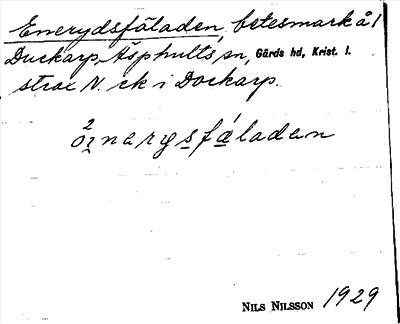 Enerydsfäladen, betesmark å 1
Duckarp, Äsphults sn, Gärds hd, Krist. l.
strax N. ck i Dockarp.
2
önerysfæ´laden
NILS NILSSON 1929